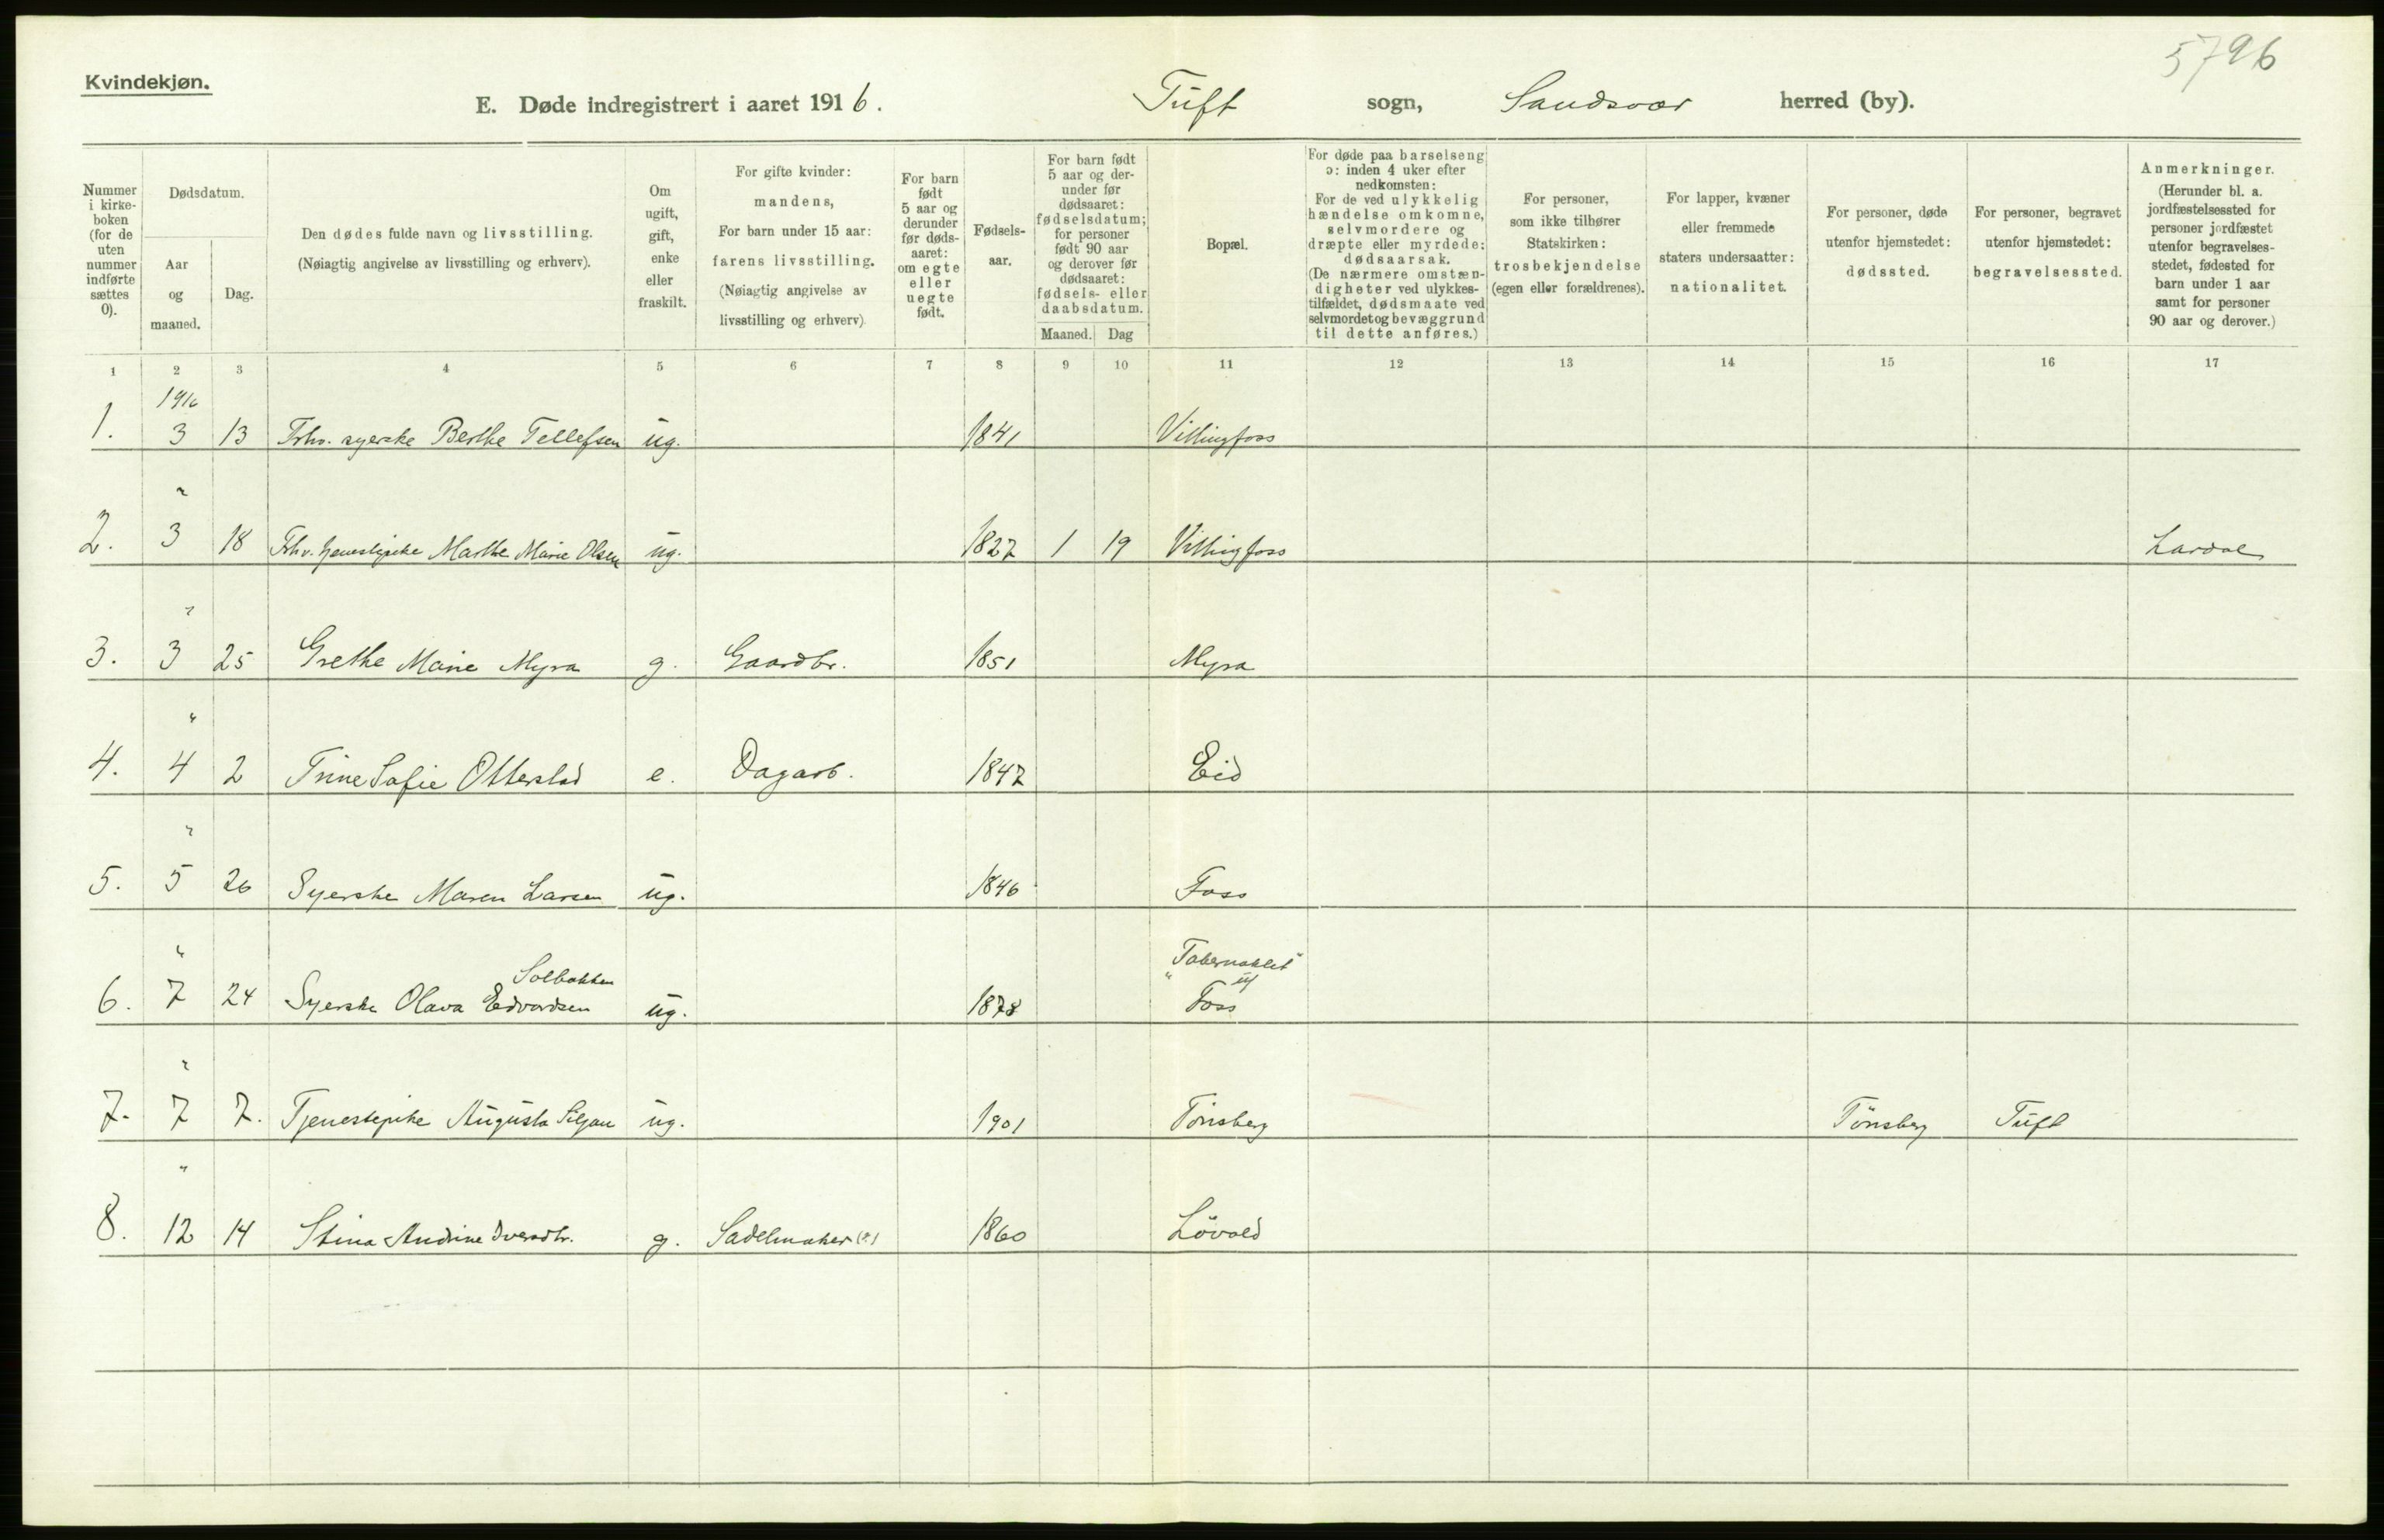 5796
Kvindekjøn.
E. Døde indregistrert i aaret 1916. Tuft sogn, Sandsvær herred (by).
Nummer i kirkeboken (for de uten nummer indførte sættes 0).
Dødsdatum.
Aar og maaned.
Dag.
Den dødes fulde navn og livsstilling.
(Nøiagtig angivelse av livsstilling og erhverv).
Om ugift, gift, enke eller fraskilt.
For gifte kvinder:
mandens,
For barn under 15 aar:
farens livsstilling.
(Nøiagtig angivelse av
livsstilling og erhverv)
For barn født 5 aar og derunder før dødsaaret: om egte eller uegte født.
Fødselsaar.
For barn født 5 aar og derunder før dødsaaret: fødselsdatum; for personer født 90 aar og derover før dødsaaret: fødsels- eller daabsdatum.
Maaned. Dag
Bopæl.
For døde paa barselseng
ɔ: inden 4 uker efter
nedkomsten:
For de ved ulykkelig
hændelse omkomne,
selvmordere og
dræpte eller myrdede:
dødsaarsak.
(De nærmere omstændigheter ved ulykkestilfældet, dødsmaate ved
selvmordet og bevæggrund
til dette anføres.)
For personer,
som ikke tilhører
Statskirken:
trosbekjendelse
(egen eller forældrenes).
For lapper, kvæner
eller fremmede
staters undersaatter:
nationalitet.
For personer, døde
utenfor hjemstedet:
dødssted.
For personer, begravet
utenfor hjemstedet:
begravelsessted.
Anmerkninger.
(Herunder bl. a.
jordfæstelsessted for
personer jordfæstet
utenfor begravelsesstedet, fødested for
barn under 1 aar
samt for personer
90 aar og derover.)
1 2 3 4 5 6 7 8 9 10 11 12 13 14 15 16 17
1916
1. 3 13 Fhv. syerske Berthe Tellefsen ug. 1841 Villingfoss
"
2. 3 18 Fhv. tjenestepike Marthe Marie Olsen ug. 1827 1 19 Villingfoss Lardal
"
3. 3 25 Grethe Marie Myra g. Gaardbr. 1851 Myra
"
4. 4 2 Trine Sofie Otterstad e. Dagarb. 1847 Eid
"
5. 5 26 Syerske Maren Larsen ug. 1846 Foss
" Solbakken "Tabernaklet"
6. 7 24 Syerske Olava Edvardsen ug. 1878 Foss
"
7. 7 7. Tjenestepike Augusta Siljan ug. 1901 Tönsberg Tönsberg Tuft
"
8. 12 14 Stina Andrine Iversdtr. g. Sadelmaker (?) 1860 Lövold